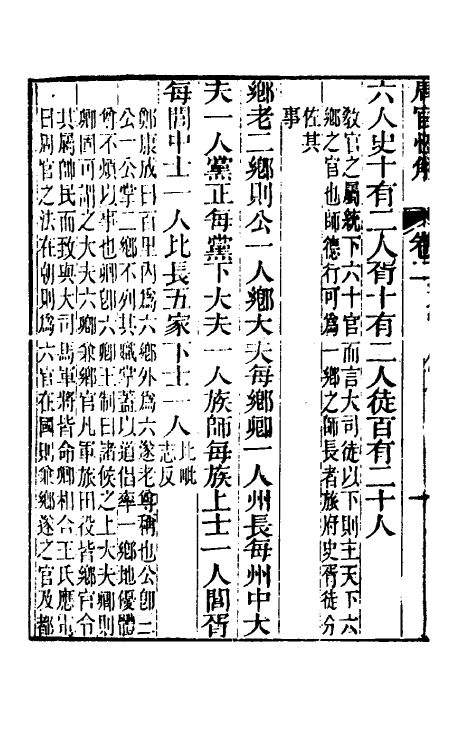 周官恆解　卷二
六人史十有二人胥十有二人徒百有二十人
教官之屬統下六十官而言大司徒以下則主天下六
鄉之官也師德行可為一鄉之師長者旅府史胥徒分
佐其
事
鄉老二鄉則公一人鄉大夫每鄉卿一人州長每州中大
夫一人黨正每黨下大夫一人族師每族上士一人閭胥
每閭中士一人比長五家下士一人比毗
志反
鄭康成曰百里內為六鄉外為六遂老尊稱也公卽三
公一公掌二鄉不列其職掌蓋以道倡率一鄉地優體
尊不煩以事也卿卽六卿王制曰諸候之上大夫卿則
卿固可謂之大夫六卿兼鄉官凡軍旅田役皆鄉官令
其屬師民而致與大司馬軍將皆命卿相合王氏應電
曰周官之法在朝則為六官在國則兼鄉遂之官及都